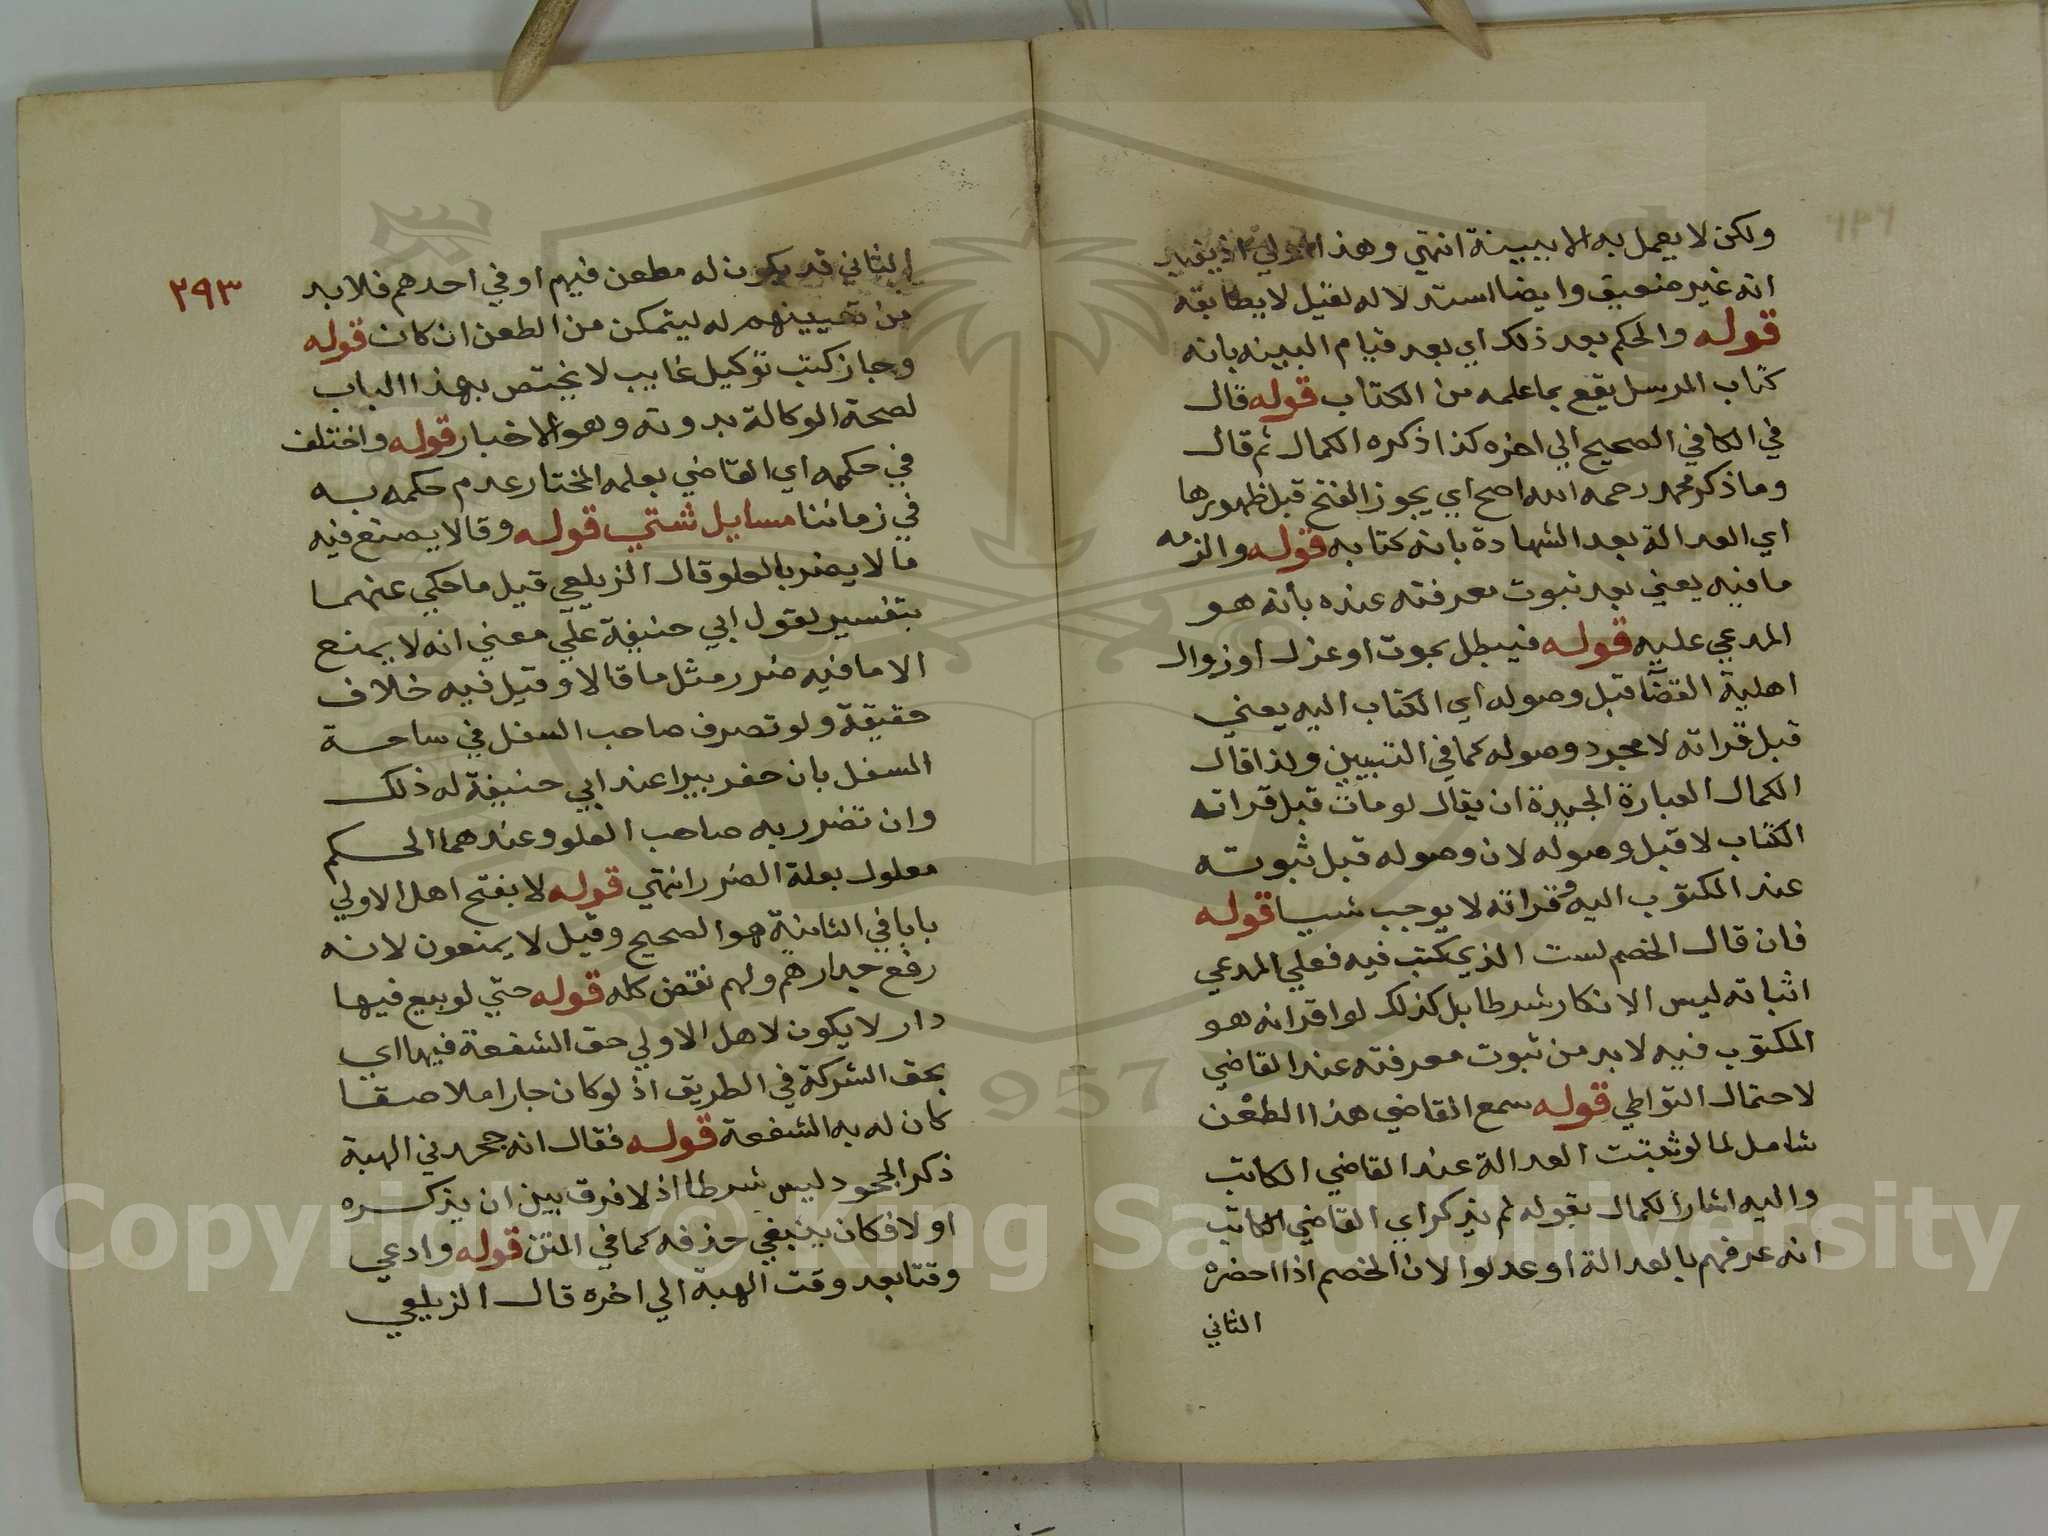 ولكن لا يعمل به الا ببينة انتهي وهذا
انه غير ضعيف وايضا استدلاله لقيل لا يطابقه
قوله والحكم بعد ذلك اي بعد قيام البينه بانه
كتاب المرسل يقع بما علمه من الكتاب قوله قال
في الكافي الصحيح الي اخره كذا ذكره الكمال ثم قال
وما ذكر محمد رحمه الله اصح اي يجوز الفتح قبل ظهورها
اي العدالة بعد الشهادة بانه كتابه قوله والزمه
ما فيه يعني بعد ثبوت معرفته عنده بأنه هو
المدعي عليه قوله فيبطل بموت او عزل او زوال
اهلية القضآ قبل وصوله اي الكتاب اليه يعني
قبل قراته لا مجرد وصوله كما في التبيين ولذا قال
الكمال العبارة الجيدة ان يقال لو مات قبل قراته
الكتاب لا قبل وصوله لان وصوله قبل ثبوته
عند المكتوب اليه وقراته لا يوجب شييا قوله
فان قال الخصم لست الذي كتب فيه فعلي المدعي
اثباته ليس الانكار شرطا بل كذلك لو اقر انه هو
المكتوب فيه لابد من ثبوت معرفته عند القاضي
لاحتمال التواطي قوله سمع القاضي هذا الطعن
شامل لما لو ثبتت العدالة عند القاضي الكاتب
واليه اشار الكمال بقوله لم يذكر اي القاضي الكاتب
انه عرفهم بالعدالة او عدلوا لان الخصم اذا احضره
الثاني
٢٩٣
الثاني قد يكون له مطعن فيهم او في احدهم فلا بد
من تعيينهم له ليتمكن من الطعن ان كان قوله
وجاز كتب توكيل غايب لا يختص بهذا الباب
لصحة الوكالة بدونه وهو الاخبار قوله واختلف
في حكمه اي القاضي بعلمه المختار عدم حكمه به
في زماننا مسايل شتي قوله وقالا يصنع فيه
ما لا يضر بالعلو قال الزيلعي قيل ما حكي عنهما
بتفسير لقول ابي حنيفة علي معني انه لا يمنع
الا ما فيه ضرر مثل ما قالا وقيل فيه خلاف
حقيقة ولو تصرف صاحب السفل في ساحة
السفل بان حفر بيرا عند ابي حنيفة له ذلك
وان تضرر به صاحب العلو وعندهما الحكم
معلول بعلة الضرر انتهي قوله لا يفتح اهل الاولي
بابا في الثانية هو الصحيح وقيل لا يمنعون لانه
رفع جدارهم ولهم نقض كله قوله حتي لو بيع فيها
دار لا يكون لاهل الاولي حق الشفعة فيها اي
بحق الشركة في الطريق اذ لو كان جارا ملاصقا
كان له به الشفعة قوله فقال انه جحدني الهبة
ذكر الجحود ليس شرطا اذ لا فرق بين ان يذكره
اولا فكان ينبغي حذفه كما في المتن قوله وادعي
وقتا بعد وقت الهبة الي اخره قال الزيلعي
957
Copyright © King Saud University